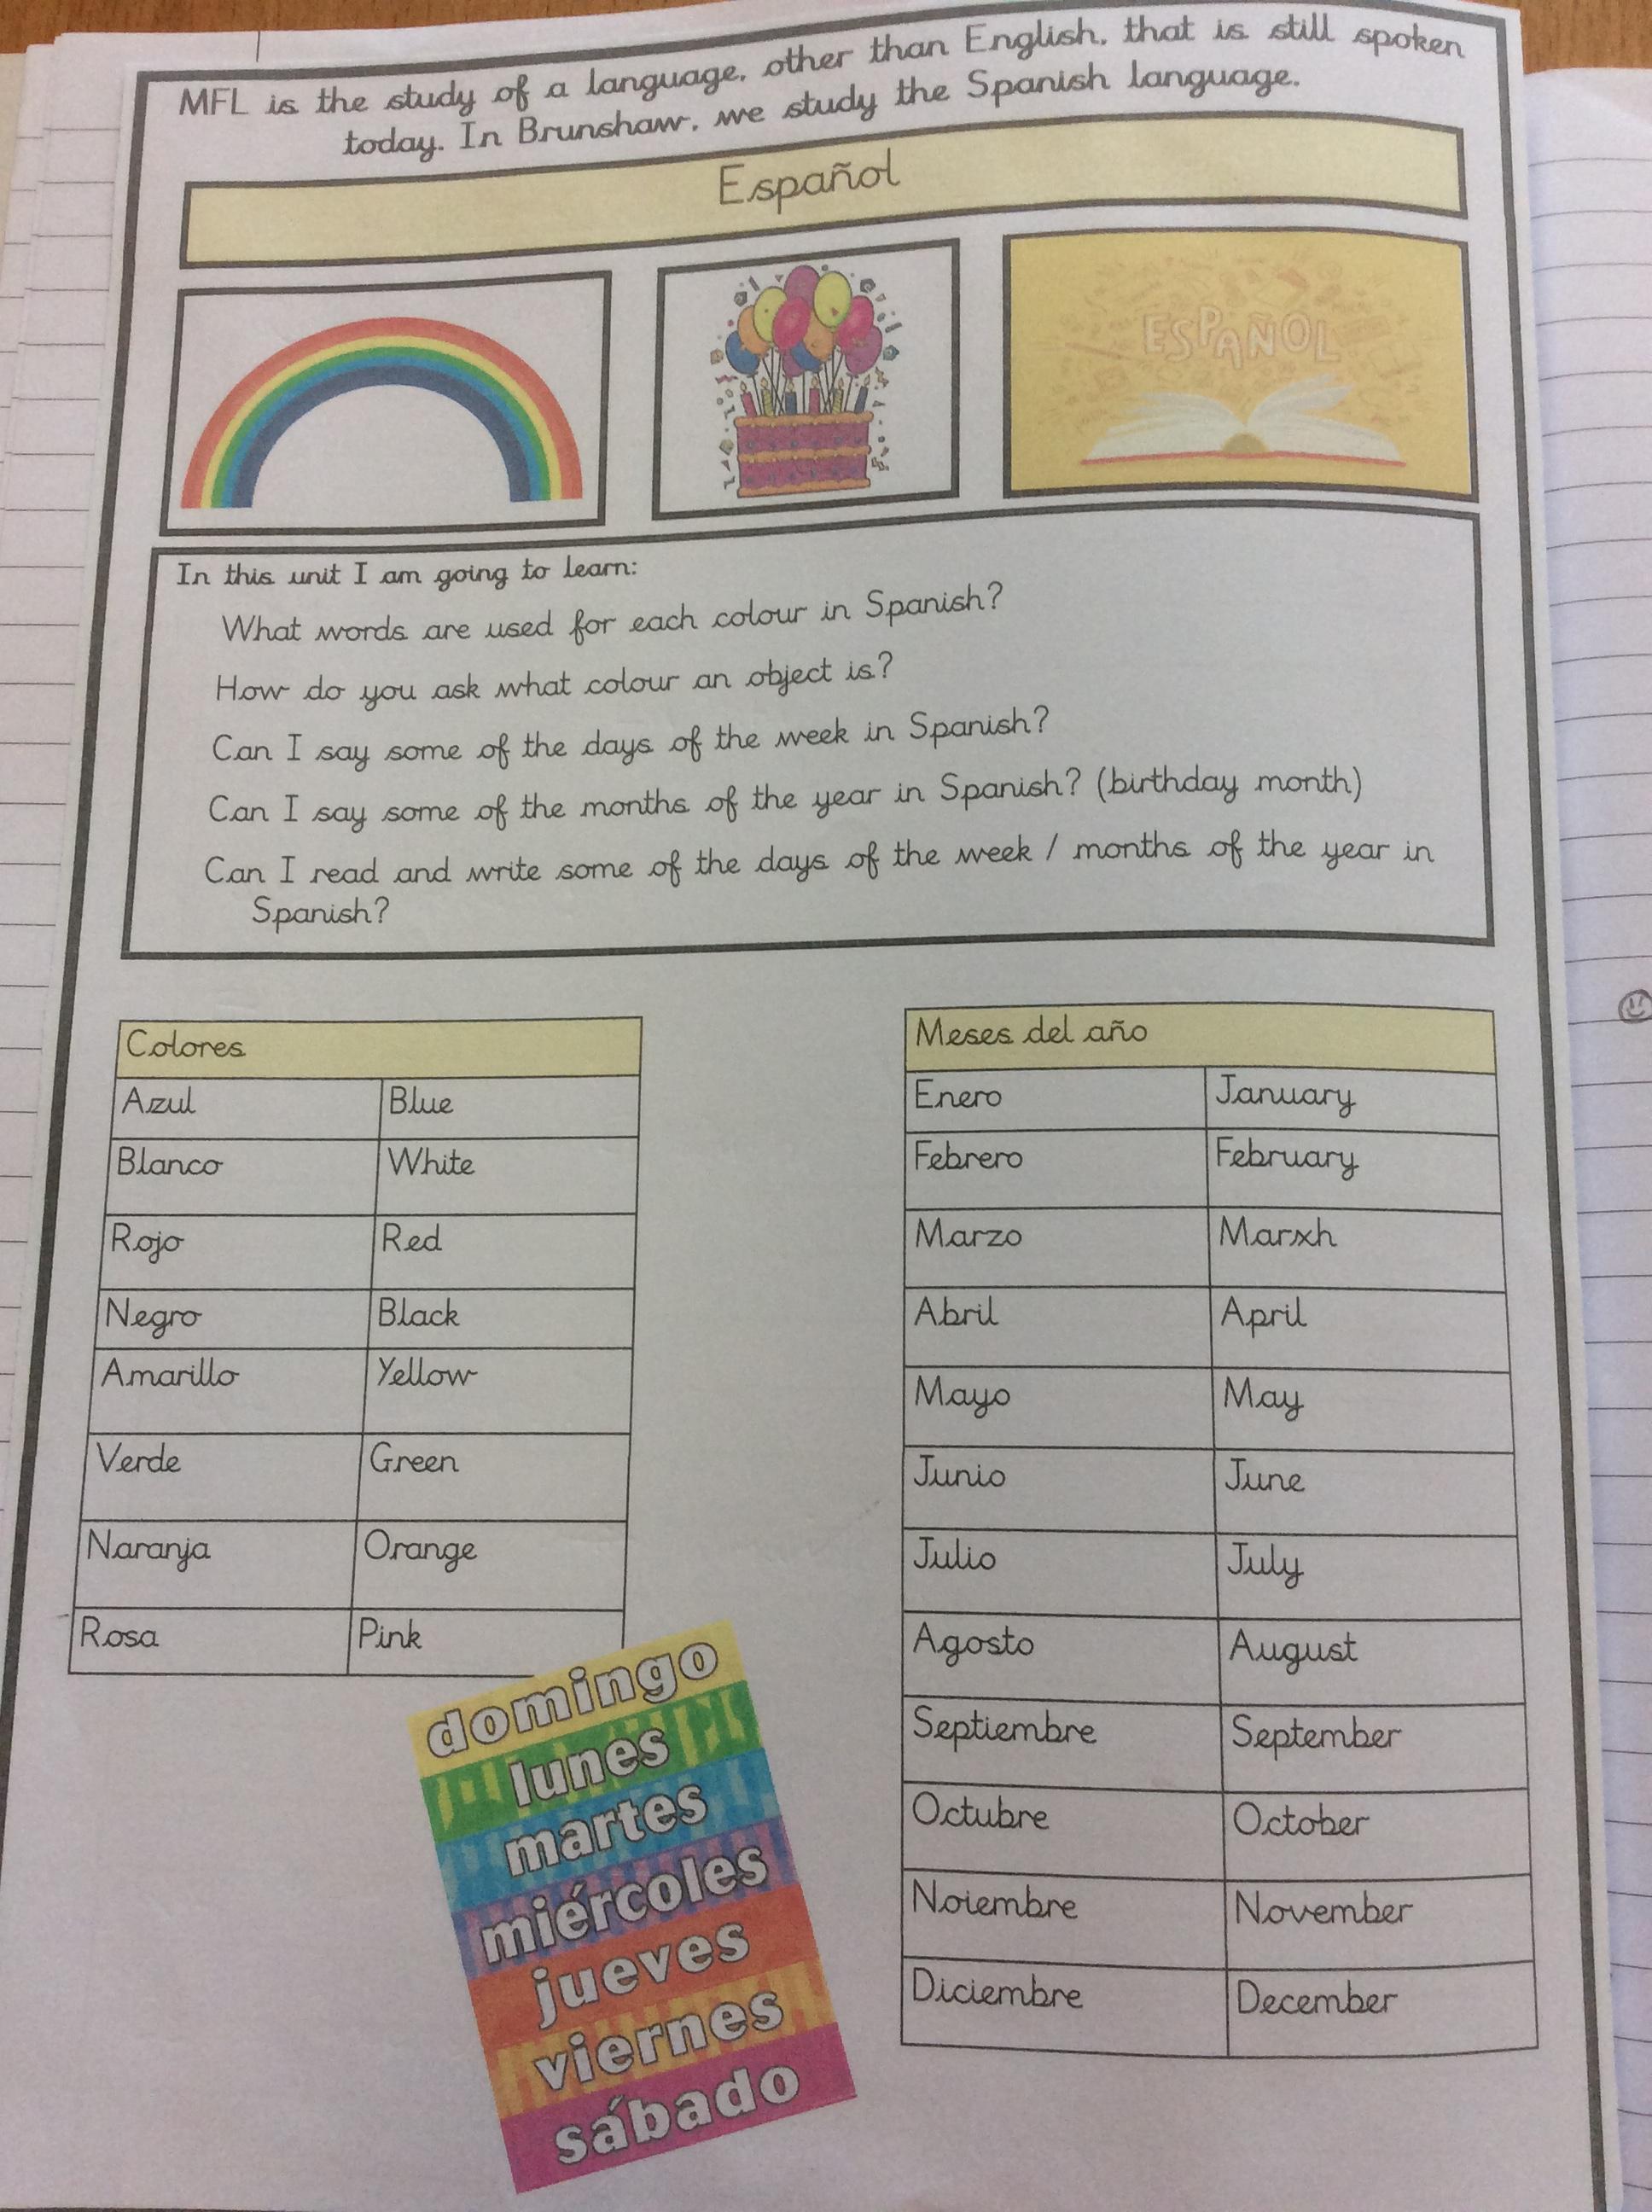 MFL is the study of a language, other than English, that is still spoken
today. In Brunshaw, we study the Spanish language.
Español
ESPAÑOL
In this unit I am going to learn:
What words are used for each colour in Spanish?
How do you ask what colour an object is?
Can I say some of the days of the week in Spanish?
Can I say some of the months of the year in Spanish? (birthday month)
Can I read and write some of the days of the week / months of the year in
Spanish?
Colores
Azul Blue
Blanco White
Rojo Red
Negro Black
Amarillo Yellow
Verde Green
Naranja Orange
Rosa Pink
domingo
lunes
martes
miércoles
jueves
viernes
sábado
Meses del año
Enero January
Febrero February
Marzo Marxh
Abril April
Mayo May
Junio June
Julio July
Agosto August
Septiembre September
Octubre October
Noiembre November
Diciembre December